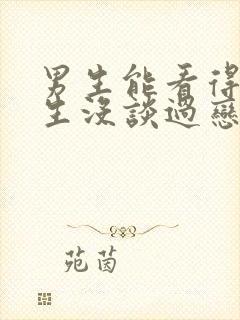 男生能看得
生沒談過戀
苑茵